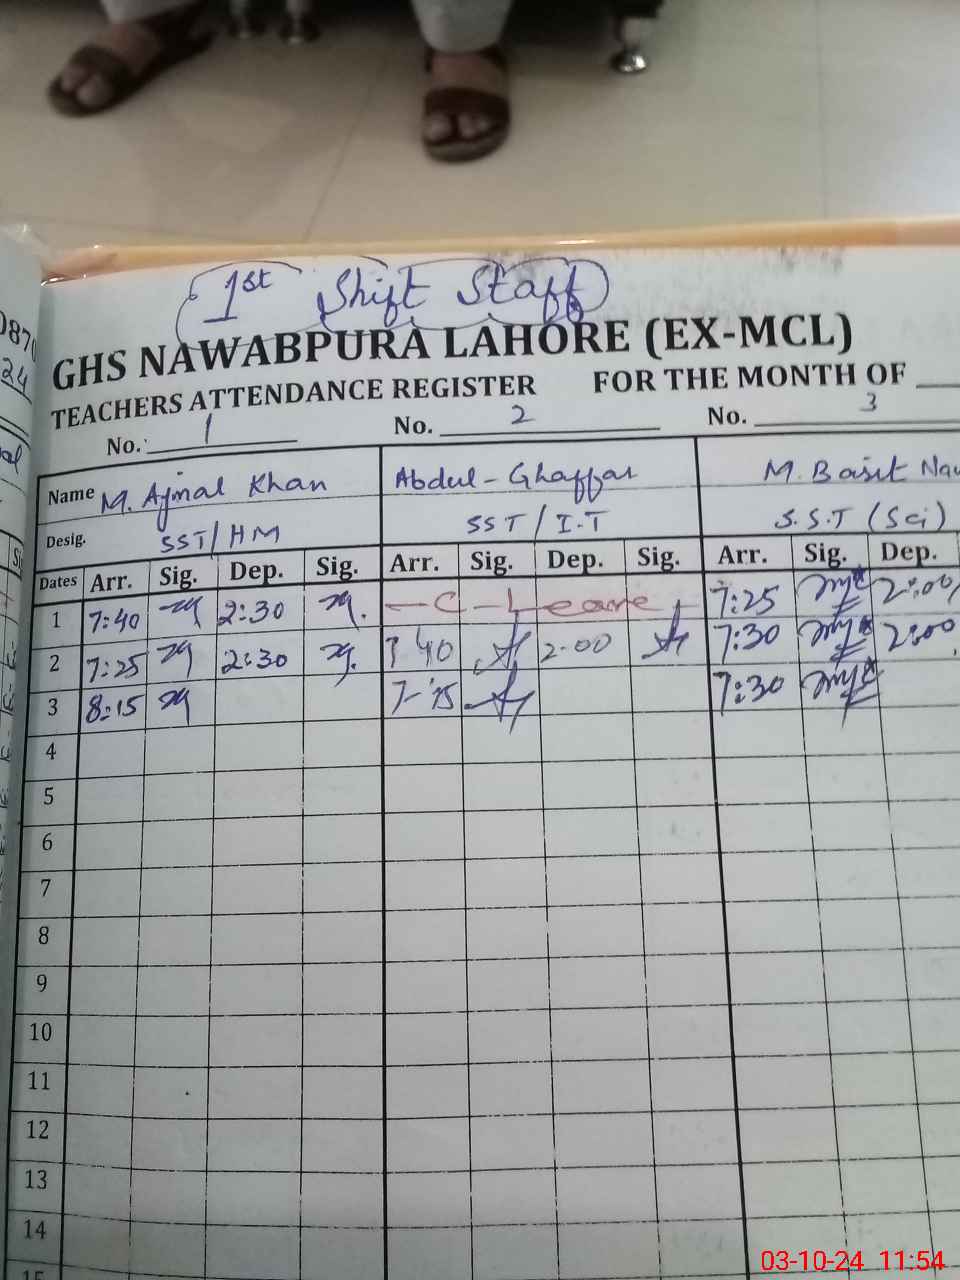 1st Shift Staff
GHS NAWABPURA LAHORE (EX-MCL)
TEACHERS ATTENDANCE REGISTER FOR THE MONTH OF
No. 1 No. 2 No. 3
Name M. Ajmal Khan Abdul-Ghaffar M. Basit
Desig. SST/HM SST/I.T S.S.T (Sci)
Dates Arr. Sig. Dep. Sig. Arr. Sig. Dep. Sig. Arr. Sig. Dep.
1 7:40 2:30 C-Leave 7:25 2:00
2 7:25 2:30 7 40 2.00 7:30 2:00
3 8:15 7-15 7:30
4
5
6
7
8
9
10
11
12
13
14
15
24
03-10-24 11:54